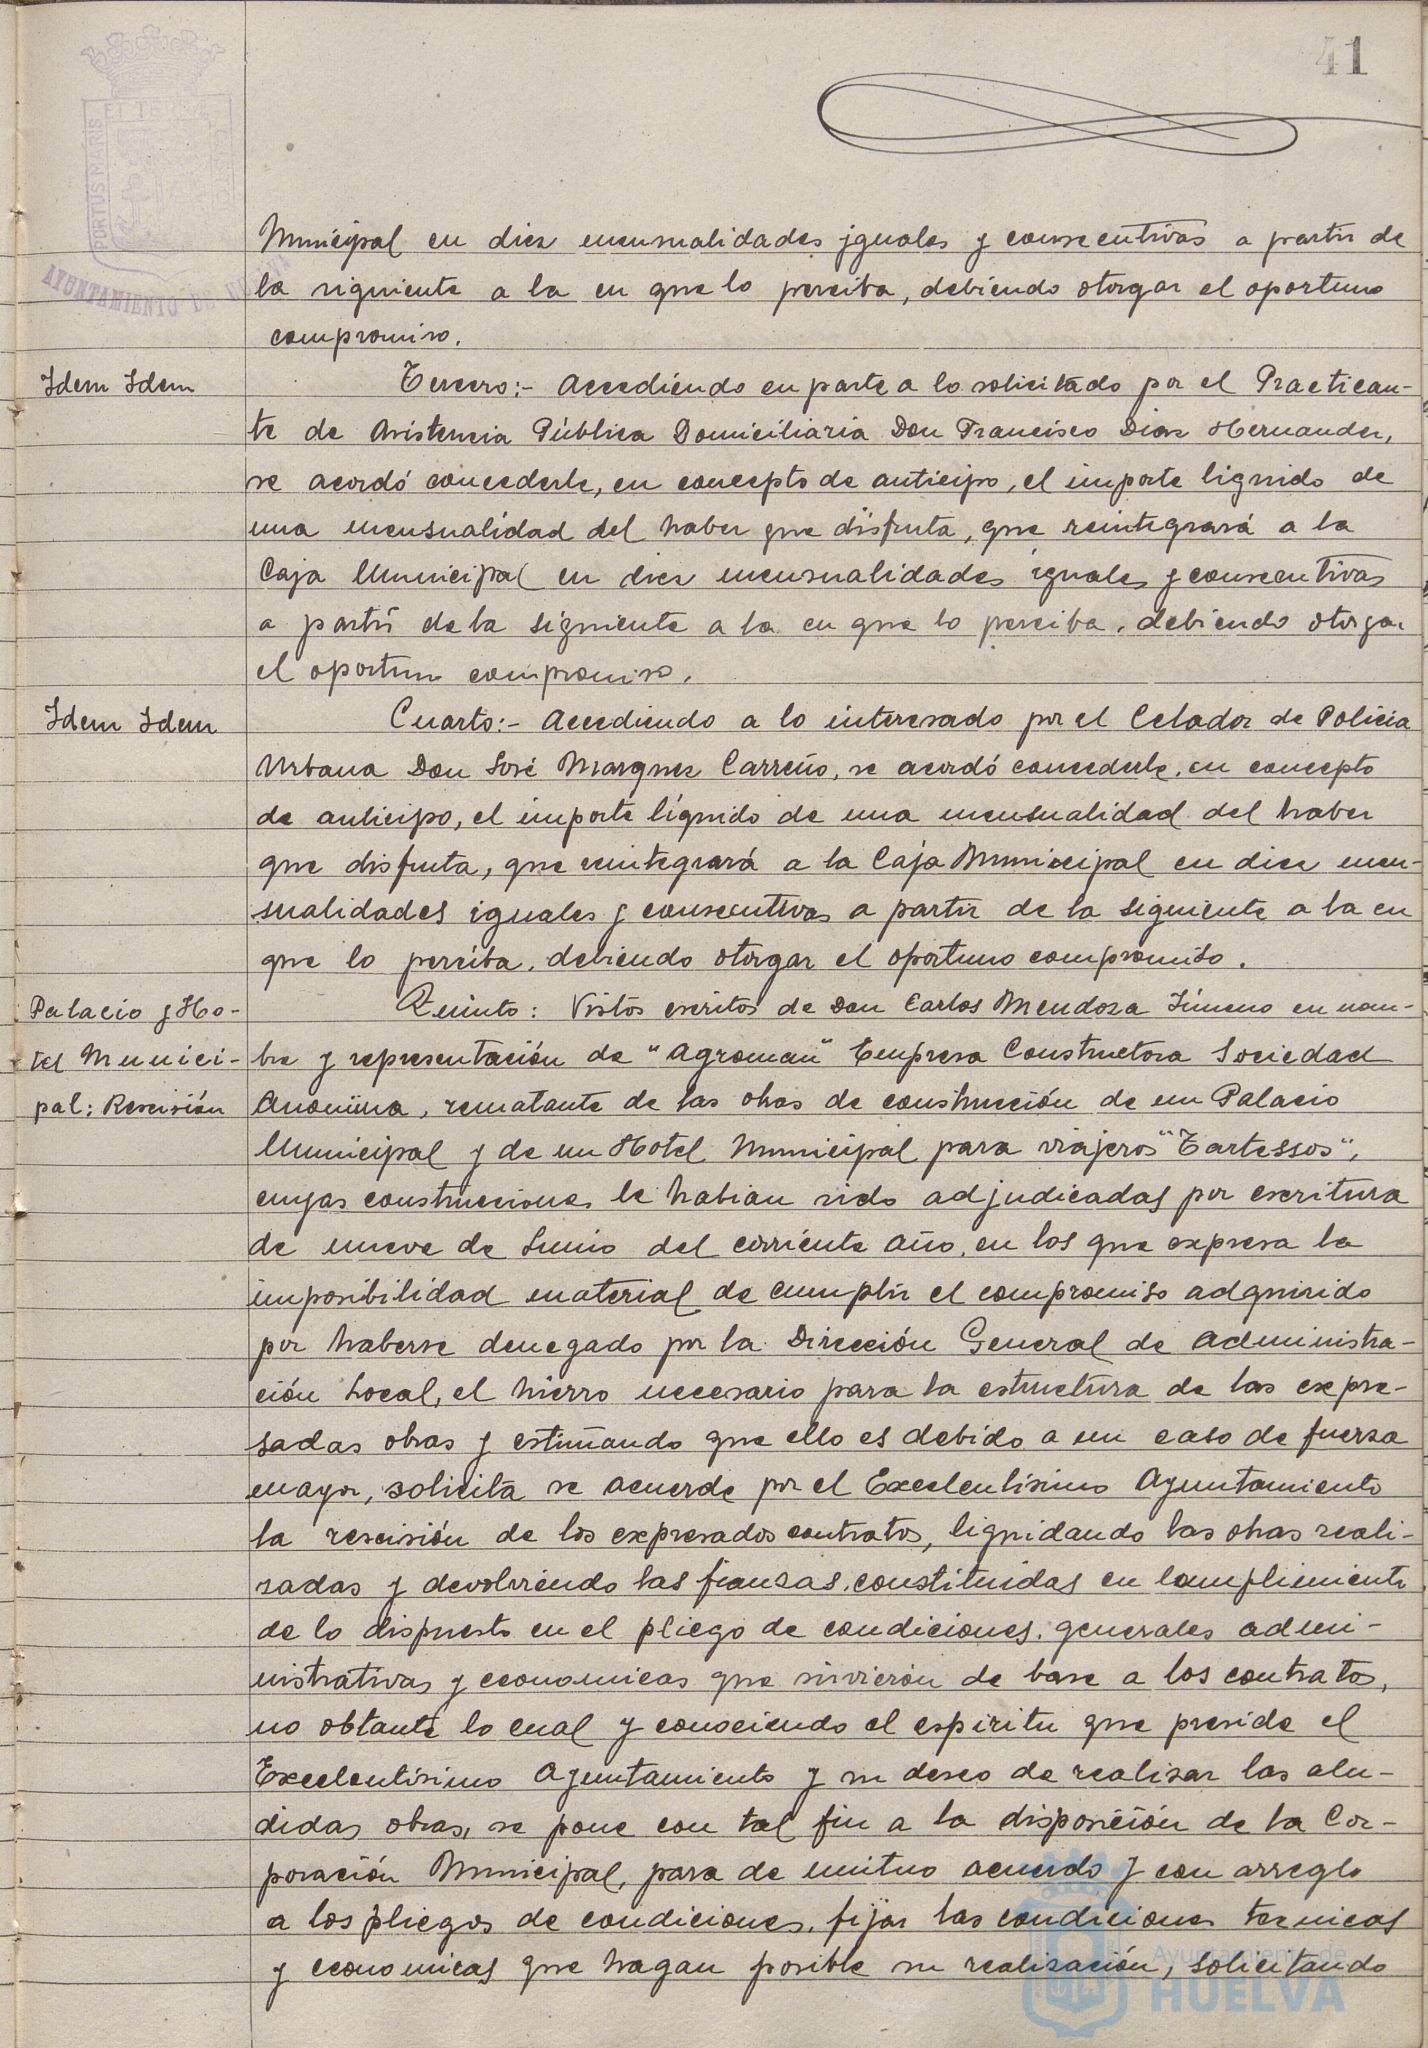 41
PORTUS MARIS
ET TERRE
AYUNTAMIENTO DE
Municipal en diez mensualidades iguales y consecutivas a partir de
la siguiente a la en que lo perciba, debiendo otorgar el oportuno
compromiso.
Idem Idem
Tercero:- Accediendo en parte a lo solicitado por el Practican-
te de Asistencia Pública Domiciliaria Don Francisco Diaz Hernandez,
se acordó concederle, en concepto de anticipo, el importe liquido de
una mensualidad del haber que disfruta, que reintegrará a la
Caja Municipal en diez mensualidades iguales y consecutivas
a partir de la siguiente a la en que lo perciba, debiendo otorgar
el oportuno compromiso.
Idem Idem
Cuarto:- Accediendo a lo interesado por el Celador de Policia
Urbana Don José Marquez Carreño, se acordó concederle, en concepto
de anticipo, el importe líquido de una mensualidad del haber
que disfruta, que reintegrará a la Caja Municipal en diez men-
sualidades iguales y consecutivas a partir de la siguiente a la en
que lo perciba, debiendo otorgar el oportuno compromiso.
Palacio y Ho-
tel Munici-
pal: Rescisión
Quinto: Vistos escritos de Don Carlos Mendoza Jimeno en nom-
bre y representación de "Agroman" Empresa Constructora Sociedad
Anonima, rematante de las obras de construcción de un Palacio
Municipal y de un Hotel Municipal para viajeros "Tartessos",
cuyas construcciones le habian sido adjudicadas por escritura
de nueve de Junio del corriente año, en los que expresa la
imposibilidad material de cumplir el compromiso adquirido
por haberse denegado por la Dirección General de Administra-
ción Local, el hierro necesario para la estructura de las expre-
sadas obras y estimando que ello es debido a un caso de fuerza
mayor, solicita se acuerde por el Excelentísimo Ayuntamiento
la rescisión de los expresados contratos, liquidando las obras reali-
zadas y devolviendo las fianzas constituidas en cumplimiento
de lo dispuesto en el pliego de condiciones generales admi-
nistrativas y economicas que sirvieron de base a los contratos,
no obtante lo cual y conociendo el espiritu que preside el
Excelentísimo Ayuntamiento y su deseo de realizar las alu-
didas obras, se pone con tal fin a la disposición de la Cor-
poración Municipal, para de mutuo acuerdo y con arreglo
a los pliegos de condiciones, fijar las condiciones tecnicas
y economicas que hagan posible su realización, solicitando
Ayuntamiento de
HUELVA